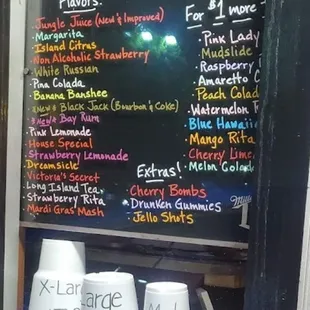 Flavors
Jungle Juice (New & Improved)
Margarita
Island Citrus
Non Alcoholic Strawberry
White Russian
Pina Colada
Banana Banshee
New & Black Jack (Bourbon & Coke)
New & Bay Rum
Pink Lemonade
House Special
Strawberry Lemonade
Dreamsicle
Victoria's Secret
Long Island Tea
Strawberry Rita
Mardi Gras Mash
For $1 more
Pink Lady
Mudslide
Raspberry
Amaretto C
Peach Colad
Watermelon
Blue Hawaii
Mango Rita
Cherry Lime
Melon Colad
Extras!
Cherry Bombs
Drunken Gummies
Jello Shots
X-Lar
Large